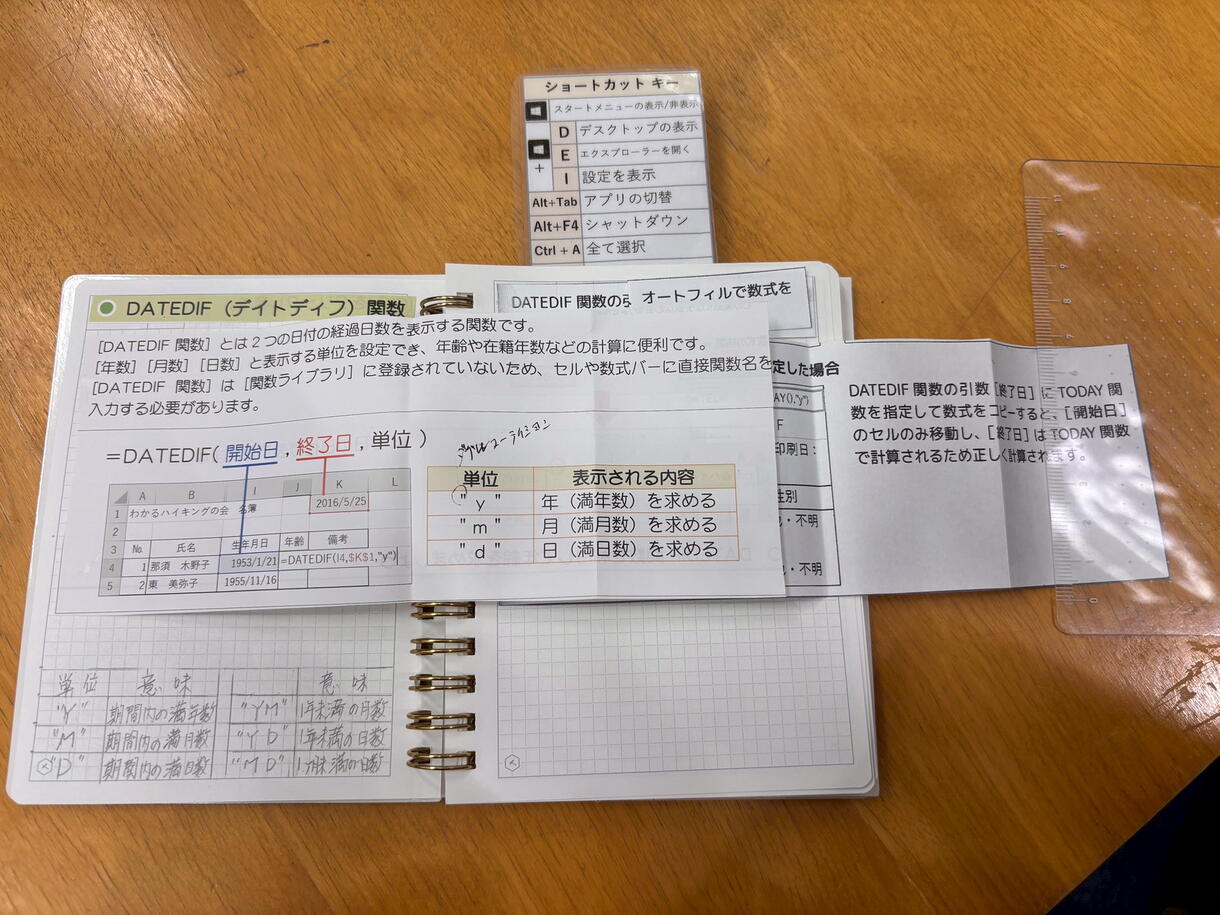 ショートカット キー
スタートメニューの表示/非表示
D デスクトップの表示
+ E エクスプローラーを開く
I 設定を表示
Alt+Tab アプリの切替
Alt+F4 シャットダウン
Ctrl + A 全て選択
DATEDIF（デイトディフ）関数
［DATEDIF 関数］とは２つの日付の経過日数を表示する関数です。
［年数］［月数］［日数］と表示する単位を設定でき、年齢や在籍年数などの計算に便利です。
［DATEDIF 関数］は［関数ライブラリ］に登録されていないため、セルや数式バーに直接関数名を
入力する必要があります。
=DATEDIF( 開始日 , 終了日 , 単位 )
ダブルコーテイション
単位 表示される内容
" y " 年（満年数）を求める
" m " 月（満月数）を求める
" d " 日（満日数）を求める
A B I J K L
1 わかるハイキングの会 名簿 2016/5/25
2
3 No. 氏名 生年月日 年齢 備考
4 1 那須 木野子 1953/1/21 =DATEDIF(I4,$K$1,"y")
5 2 東 美弥子 1955/11/16
DATEDIF 関数の
オートフィルで数式を
定した場合
AY(),"y")
F
印刷日：
性別
・不明
・不明
DATEDIF 関数の引数［終了日］に TODAY 関
数を指定して数式をコピーすると、［開始日］
のセルのみ移動し、［終了日］は TODAY 関数
で計算されるため正しく計算されます。
単位 意味 意味
"Y" 期間内の満年数 "YM" 1年未満の月数
"M" 期間内の満月数 "YD" 1年未満の日数
"D" 期間内の満日数 "MD" 1ヶ月未満の日数